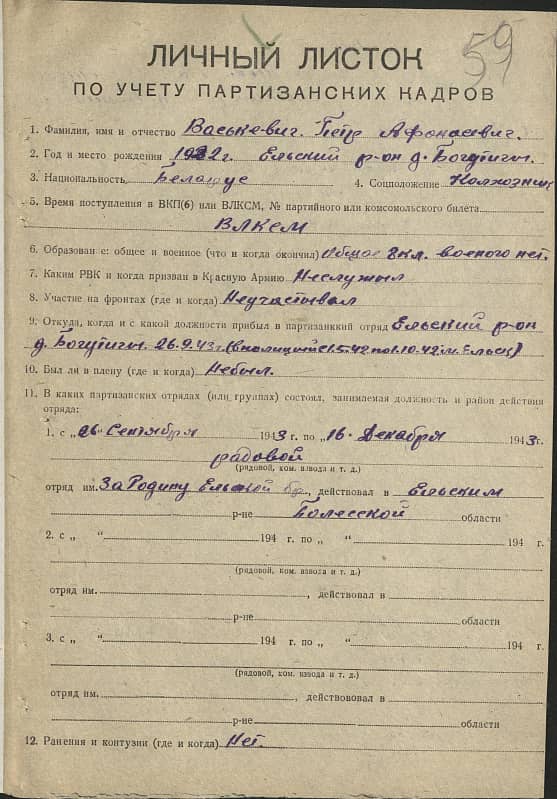 59
ЛИЧНЫЙ ЛИСТОК
ПО УЧЕТУ ПАРТИЗАНСКИХ КАДРОВ
1. Фамилия, имя и отчество Васькевич. Пётр Афонасевич.
2. Год и место рождения Ельский р-он д. Богутичи.
3. Национальность Белорус 4. Соцположение Колхозник
5. Время поступления в ВКП(б) или ВЛКСМ, № партийного или комсомольского билета
ВЛКСМ
6. Образован е: общее и военное (что и когда окончил) Общое 8 кл. военого нет.
7. Каким РВК и когда призван в Красную Армию Неслужыл
8. Участие на фронтах (где и когда) Неучаствал
9. Откуда, когда и с какой должности прибыл в партизанкий отряд Ельский р-он
д. Богутичи. 26.9.43 г. (в полицыи с 1.5.42 по 1.10.42 м. Ельск)
10. Был ли в плену (где и когда) Небыл.
11. В каких партизанских отрядах (или группах) состоял, занимаемая должность и район действия
отряда:
1. с „26 “ Сентября 1943 г. по „16 “ Декабря 1943 г.
радовой
(рядовой, ком. взвода и т. д.)
отряд им. За Родину Ельской бр., действовал в Ельским
р-не Полесской области
2. с „ “ 194 г. по „ “ 194 г.
(рядовой, ком. взвода и т. д.)
отряд им. , действовал в
р-не области
3. с „ “ 194 г. по „ “ 194 г.
(рядовой, ком. взвода и т. д.)
отряд им. , действововал в
р-не области
12. Ранения и контузии (где и когда) Нет.